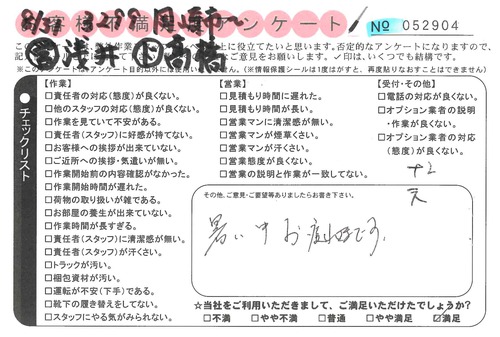 お客様不満足アンケート
№ 052904
8/31
浅井
高橋
記
※このアンケートはアンケート目的以外には使用いたしません。(※情報保護シールは1度はがすと、再度貼りなおすことはできません)
チェックリスト
【作業】
□責任者の対応(態度)が良くない。
□他のスタッフの対応(態度)が良くない。
□作業を見ていて不安がある。
□責任者(スタッフ)に好感が持てない。
□お客様への挨拶が出来ていない。
□ご近所への挨拶・気遣いが無い。
□作業開始前の内容確認がなかった。
□作業開始時間が遅れた。
□荷物の取り扱いが雑である。
□お部屋の養生が出来ていない。
□作業時間が長すぎる。
□責任者(スタッフ)に清潔感が無い。
□責任者(スタッフ)が汗くさい。
□トラックが汚い。
□梱包資材が汚い。
□運転が不安(下手)である。
□靴下の履き替えをしてない。
□スタッフにやる気がみられない。
【営業】
□見積もり時間に遅れた。
□見積もり時間が長い。
□営業マンに清潔感が無い。
□営業マンが煙草くさい。
□営業マンが汗くさい。
□営業態度が良くない。
□営業の説明と作業が一致してない。
【受付・その他】
□電話の対応が良くない。
□オプション業者の説明・作業が良くない。
□オプション業者の対応(態度)が良くない。
その他、ご意見・ご要望等ありましたらお書き下さい。
暑い中お疲れ様です。
☆当社をご利用いただきまして、ご満足いただけたでしょうか?
□不満 □やや不満 □普通 □やや満足 ☑満足